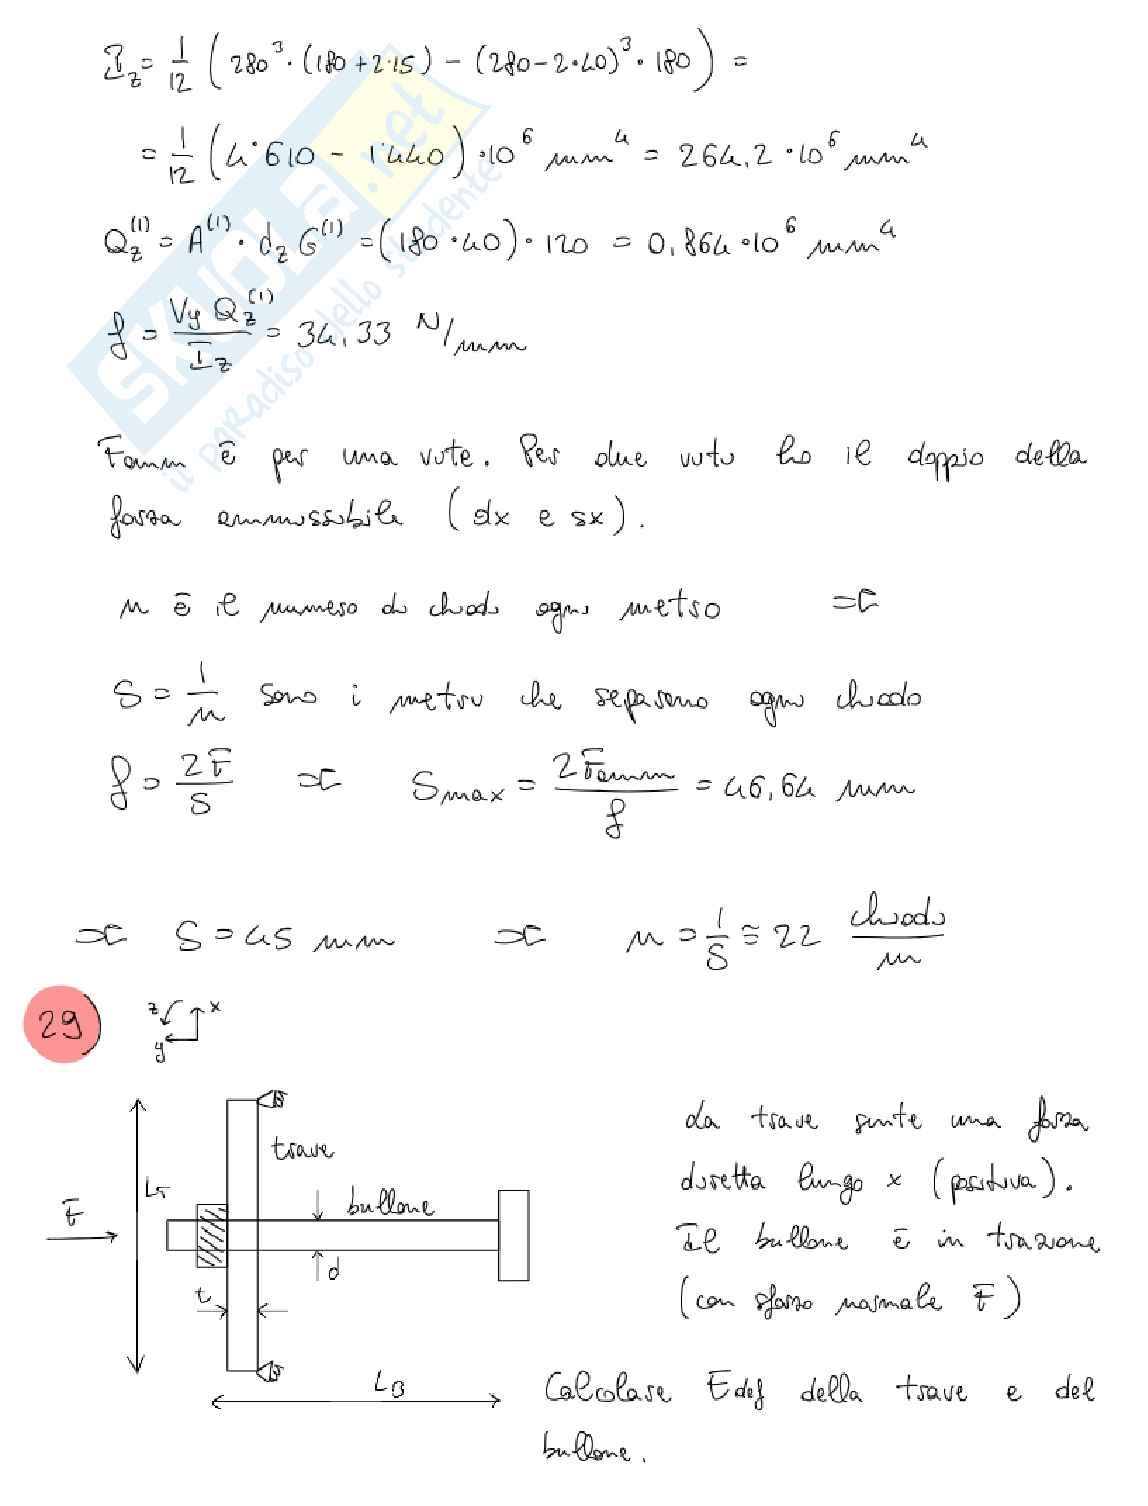 I_z = 1/12 (280³·(180+2·15) − (280−2·40)³·180) =
= 1/12 (4˙610 − 1˙440)·10⁶ mm⁴ = 264,2·10⁶ mm⁴
Q_z⁽¹⁾ = A⁽¹⁾·d_z G⁽¹⁾ = (180·40)·120 = 0,864·10⁶ mm⁴
f = V_y Q_z⁽¹⁾ / I_z = 34,33 N/mm
SKUOLA.net
il paradiso dello studente
Famm è per una vite. Per due viti ho il doppio della
forza ammissibile (dx e sx).
n è il numero di chiodi ogni metro ⇒
S = 1/n sono i metri che separano ogni chiodo
f = 2F/S ⇒ S_max = 2Famm/f = 46,64 mm
⇒ S = 45 mm ⇒ n = 1/S ≅ 22 chiodi/m
29
z x
y
trave
La trave sente una forza
L_T
diretta lungo x (positiva).
F
bullone
Il bullone è in trazione
d
t
(con sforzo normale F)
L_B
Calcolare Edef della trave e del
bullone.